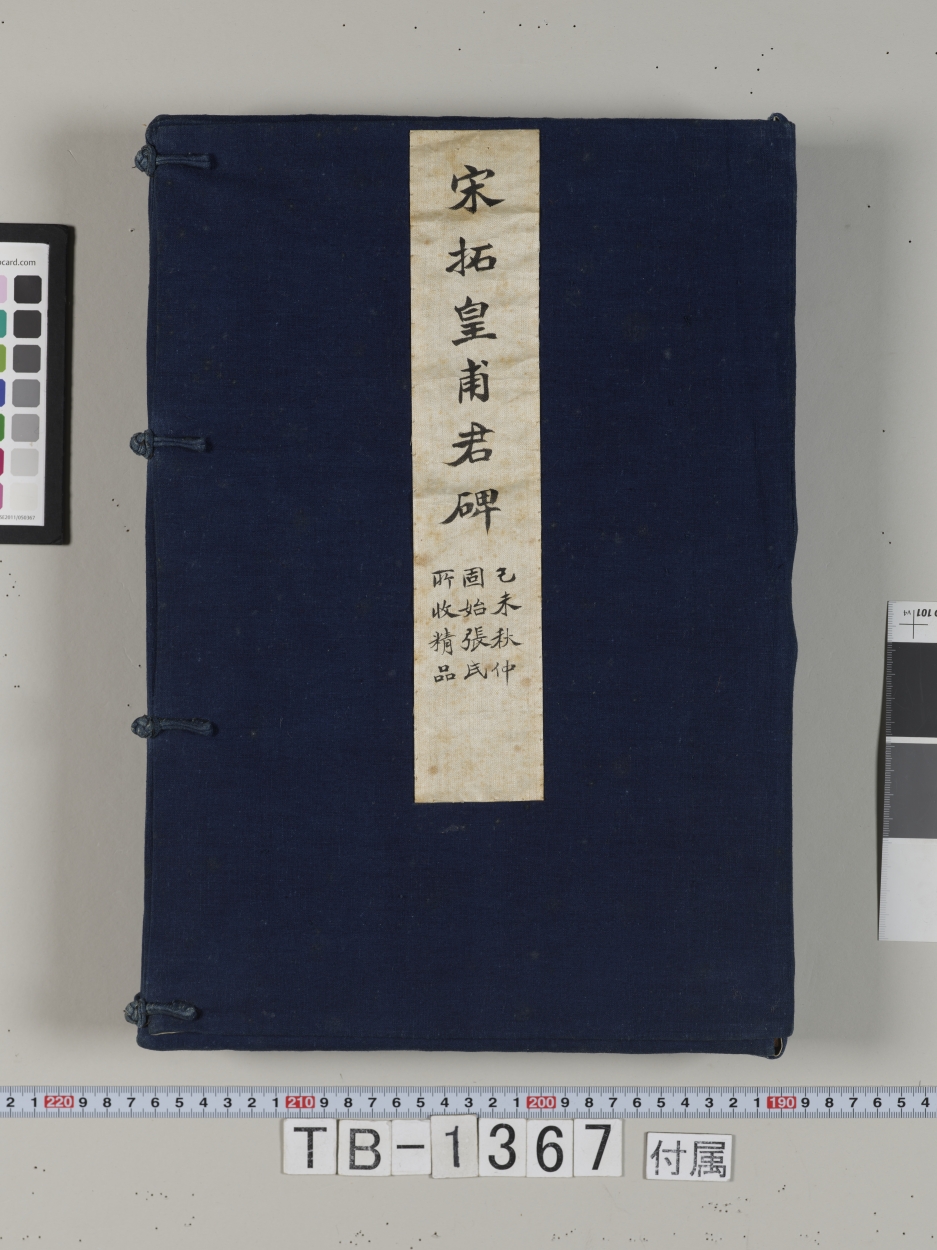 宋拓皇甫君碑
己未秋仲
固始張氏
所收精品
card.com
101
2 1 220 9 8 7 6 5 4 3 2 1 210 9 8 7 6 5 4 3 2 1 200 9 8 7 6 5 4 3 2 1 190 9 8 7 6 5 4
TB-1367
付属